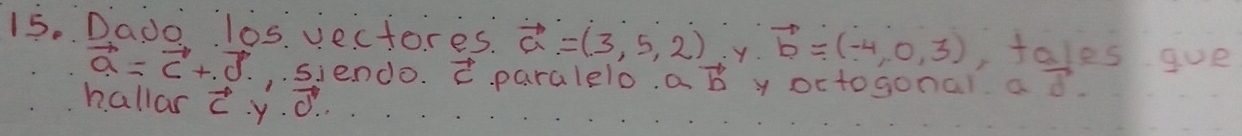 15. Dado los vectores. a⃗ = (3, 5, 2) y b⃗ = (-4, 0, 3), tales que
a⃗ = c⃗ + d⃗, siendo c⃗ paralelo a b⃗ y octogonal a d⃗.
hallar c⃗ y d⃗.